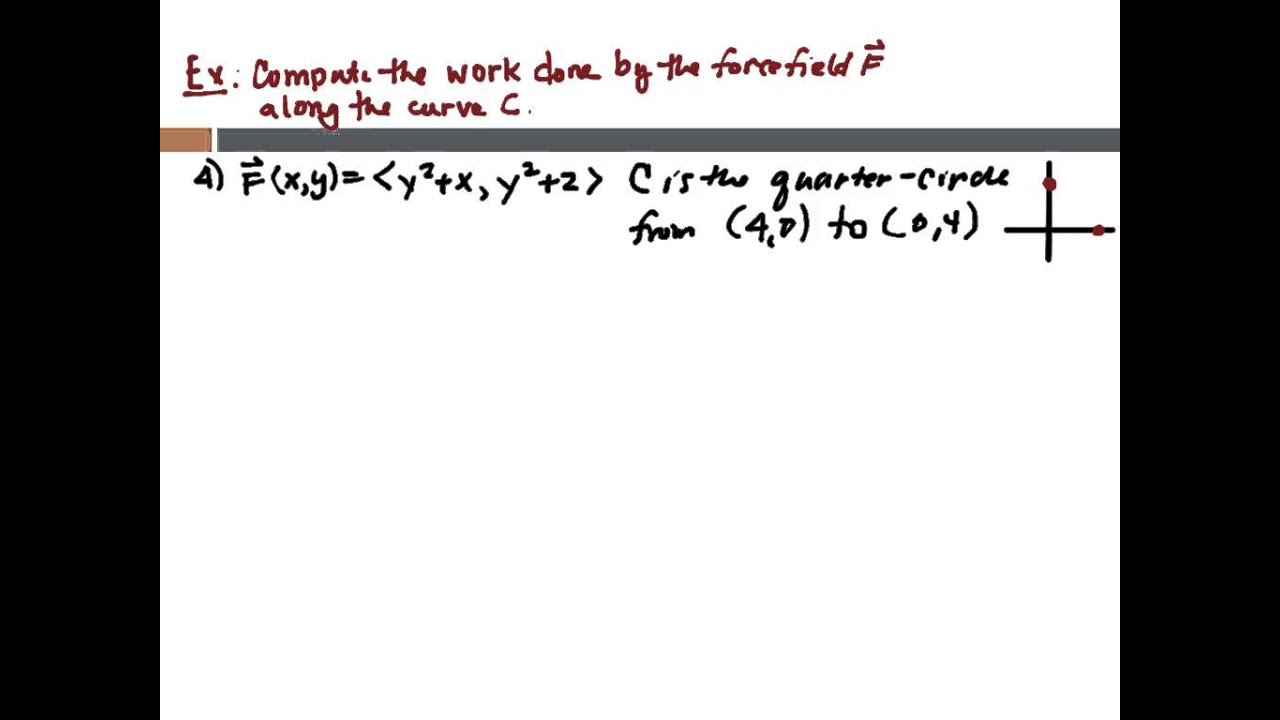 Ex: Compute the work done by the force field F⃗
along the curve C.
4) F⃗(x,y)=<y²+x, y²+2> C is the quarter-circle
from (4,0) to (0,4)